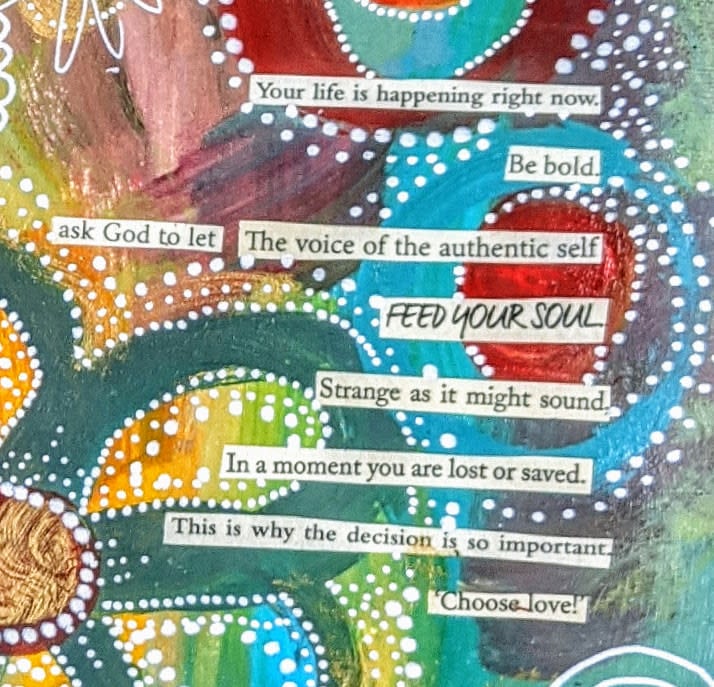 Your life is happening right now.
Be bold.
ask God to let The voice of the authentic self
FEED YOUR SOUL
Strange as it might sound,
In a moment you are lost or saved.
This is why the decision is so important.
'Choose love!'